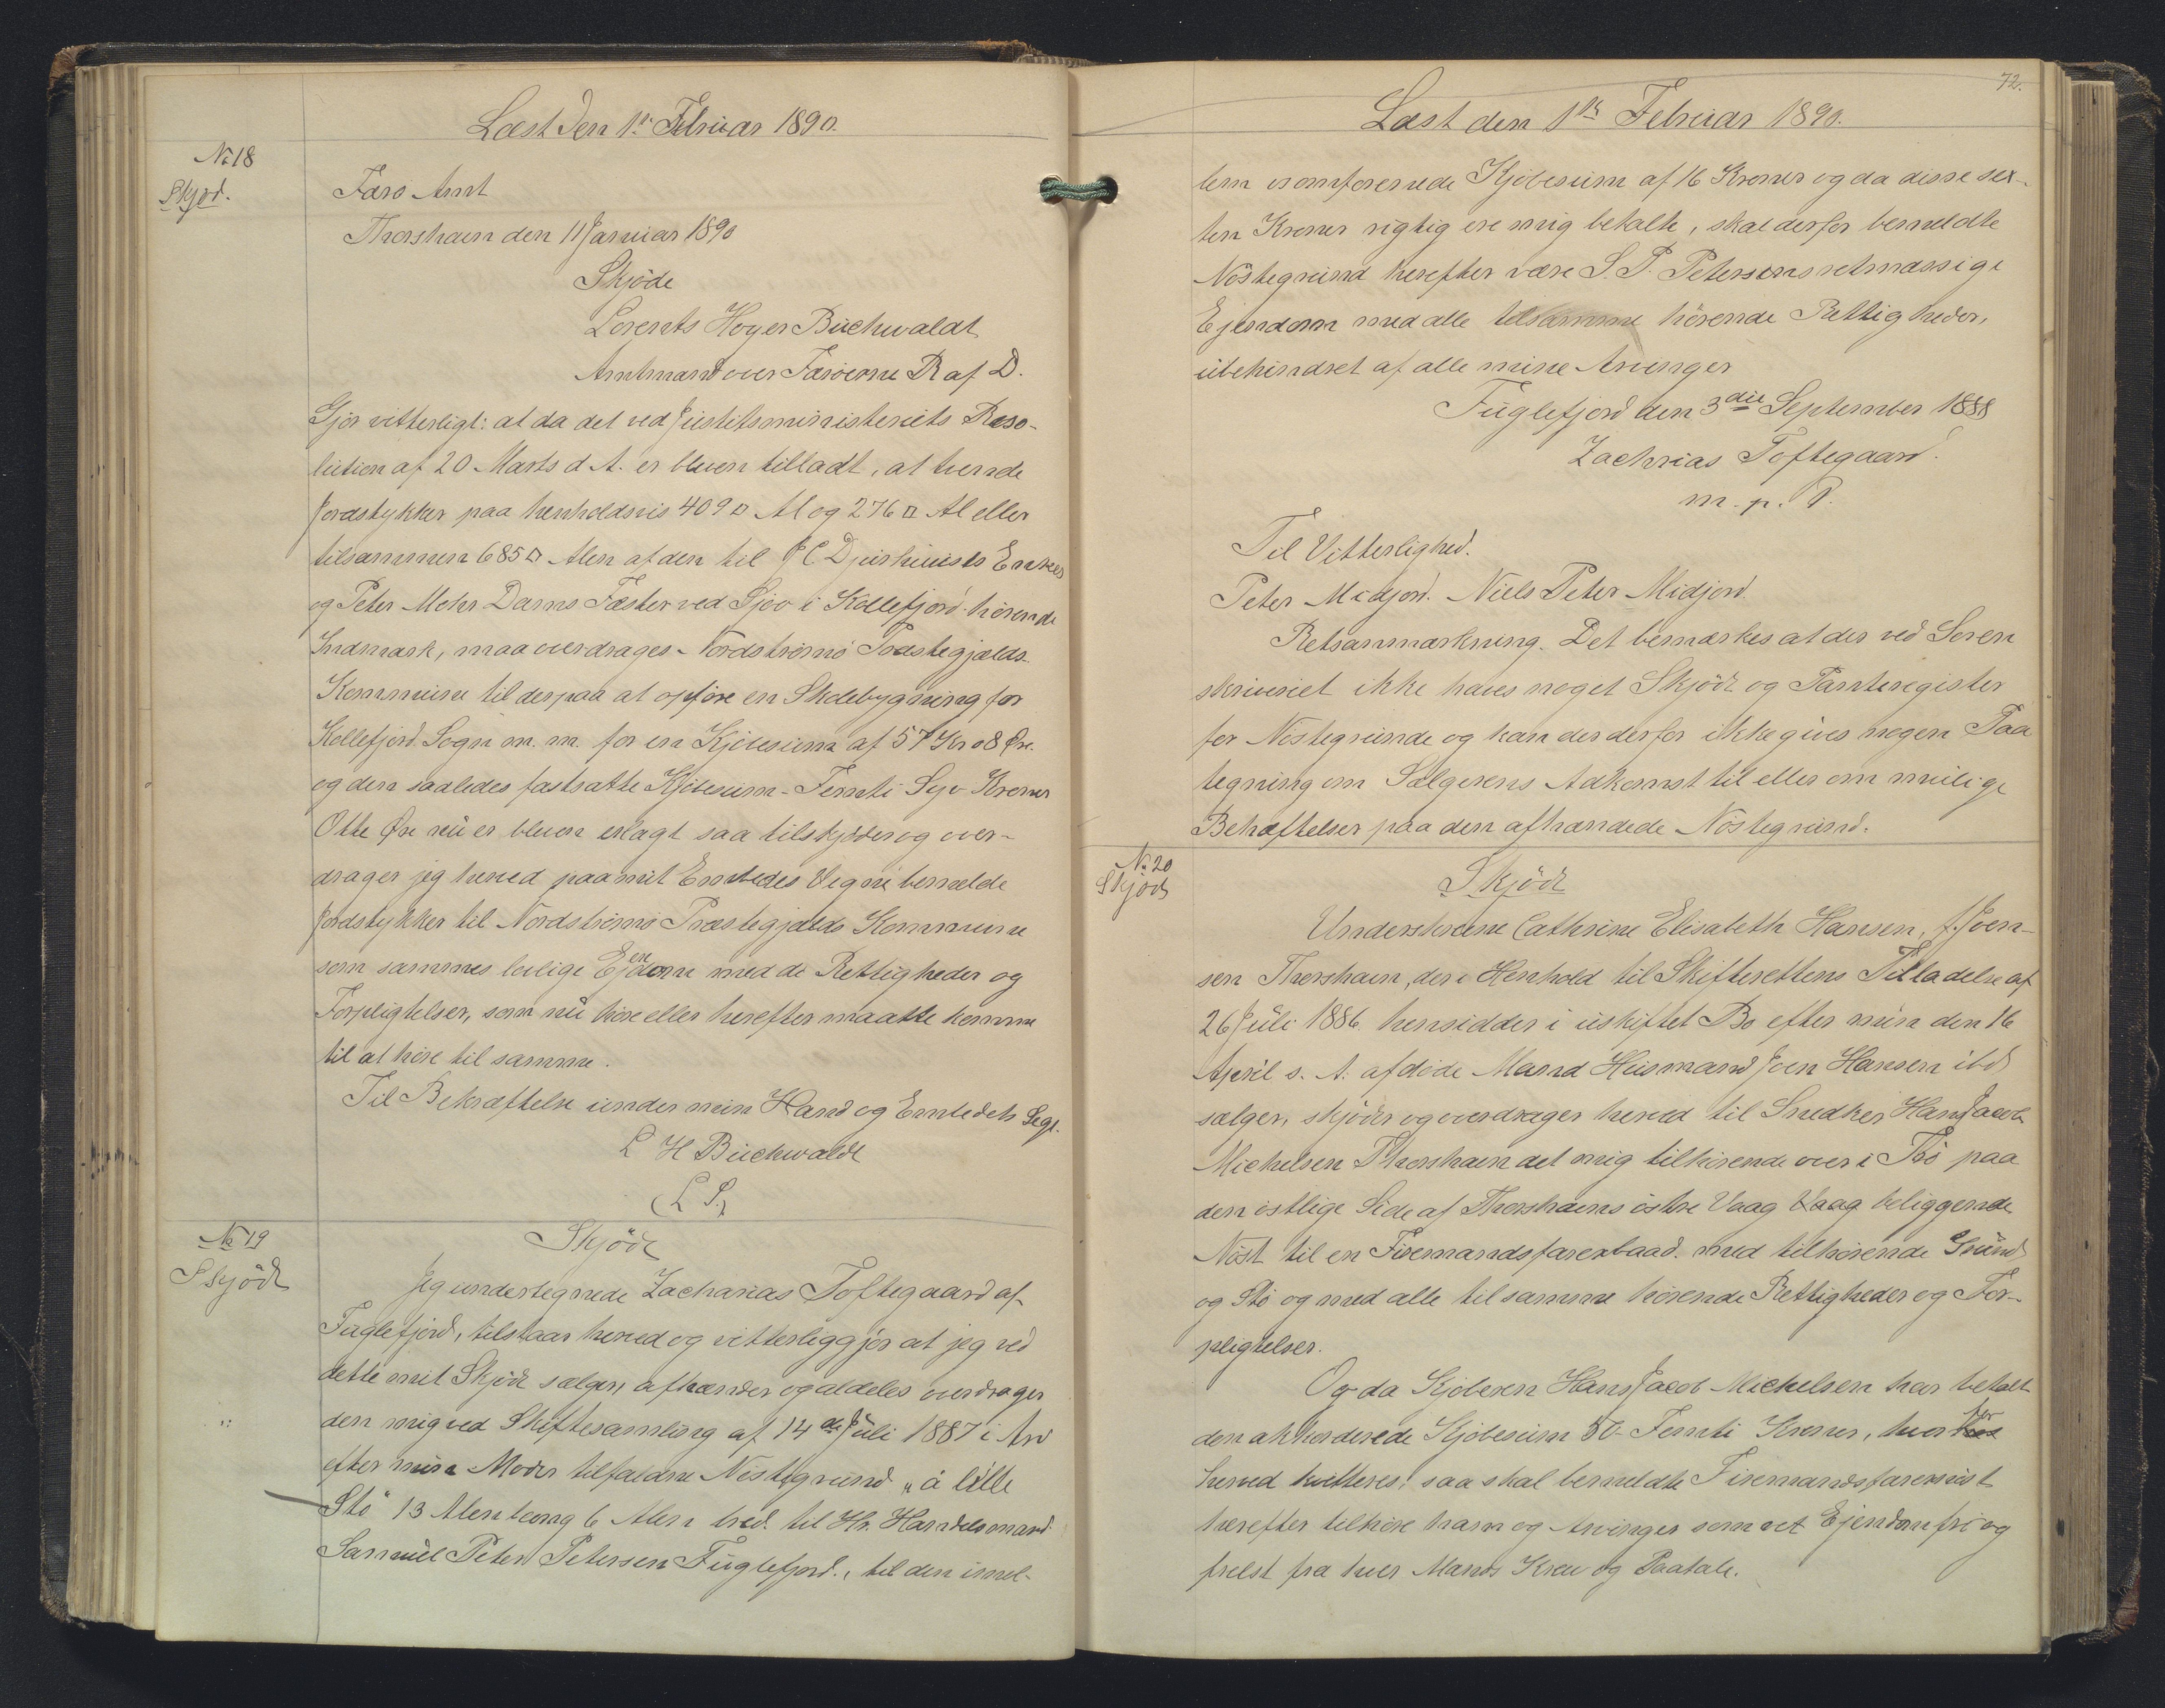 Læst den 1ste Februar 1890.
No 18
Skjød.
Færø Amt
Thorshavn den 11 Januar 1890
Skjøde
Lorents Høyer Buchwaldt
Amtmand over Færøerne R af D.
Gjør vitterligt: at da det ved Justitsministeriets Reso-
lution af 20 Marts d. A. er bleven tilladt, at tvende
Jordstykker paa henholdsvis 409 □ Al og 276 □ Al eller
tilsammen 685 □ Alen af den til J C Djurhuus's Enkes
og Peter Mohr Dams Fæster ved Sjov i Kollefjord hørende
Indmark, maa overdrages Nordstrømø Præstegjælds
Kommune til derpaa at opføre en Skolebygning for
Kollefjord Sogn m. m. for en Kjøbesum af 57 Kr 08 Øre.
og den saaledes fastsatte Kjøbesum - Femti Syv Kroner
Otte Øre nu er bleven erlagt saa tilskjøder og over-
drager jeg herved paa mit Embedes Vegne bemeldte
Jordstykker til Nordstrømø Præstegjælds Kommune
som sammes lovlige Ejendom med de Rettigheder og
Forpligtelser, som nu høre eller herefter maatte komme
til at høre til samme.
Til Bekræftelse under min Haand og Embedets Segl.
L H Buchwaldt
(L S.)
No 19
Skjöde
Skjöde
Jeg undertegnede Zacharias Toftegaard af
Fuglefjord, tilstaar herved og vitterliggjør at jeg ved
dette mit Skjöde sælger, afhænder og aldeles overdrager
den mig ved Skiftesamling af 14de Juli 1887 i Arv
efter min Moder tilfaldne Nöstegrund "á lille
Stö" 13 Alen lang 6 Alen bred. til Hr. Handelsmand
Samuel Peter Petersen Fuglefjord., til den imel-
72.
Læst den 1ste Februar 1890.
lem os omforenede Kjöbesum af 16 Kroner og da disse sex-
ten Kroner rigtig ere mig betalte, skal derfor bemeldte
Nöstegrund herefter være S. P. Petersens retmæssige
Ejendom med alle tilsamme hörende Rettigheder,
ubehindret af alle mine Arvinger
Fuglefjord den 3die September 1888
Zachrias Toftegaard.
m. p. P.
Til Vitterlighed.
Peter Midjord. Niels Peter Midjord
Retsanmærkning. Det bemærkes at der ved Soren
skriveriet ikke haves noget Skjöde og Panteregister
for Nöstegrunde og kan der derfor ikke gives nogen Paa
tegning om Sælgerens Adkomst til eller om mulige
Behæftelser paa den afhændede Nöstegrund.
No 20
Skjöde
Skjöde
Underskrevne Cathrine Elisabeth Hansen, f. Joen-
sen Thorshavn, der i Henhold til Skifterettens Tilladelse af
26 Juli 1886 hensidder i uskiftet Bo efter min den 16
April s. A. afdøde Mand Husmand Joen Hansen ibd
sælger, skjöder og overdrager herved til Snedker Hans Jacob
Michelsen Thorshavn det mig tilhörende over i Trö paa
den östlige Side af Thorshavns östre Vaag Vaag beliggende
Nöst til en Firemandsfarerbaad. med tilhörende Grund
og Stö og med alle til samme hörende Rettigheder og For-
pligtelser.
Og da Kjöberen Hans Jacob Michelsen har betalt
den akkorderede Kjöbesum 50 - Femti Kroner, hvorfor
herved kvitteres; saa skal bemeldte Firemandsfarernöst
herefter tilhöre ham og Arvinger som ret Ejendom fri og
frelst fra hver Mands Krav og Paatale.